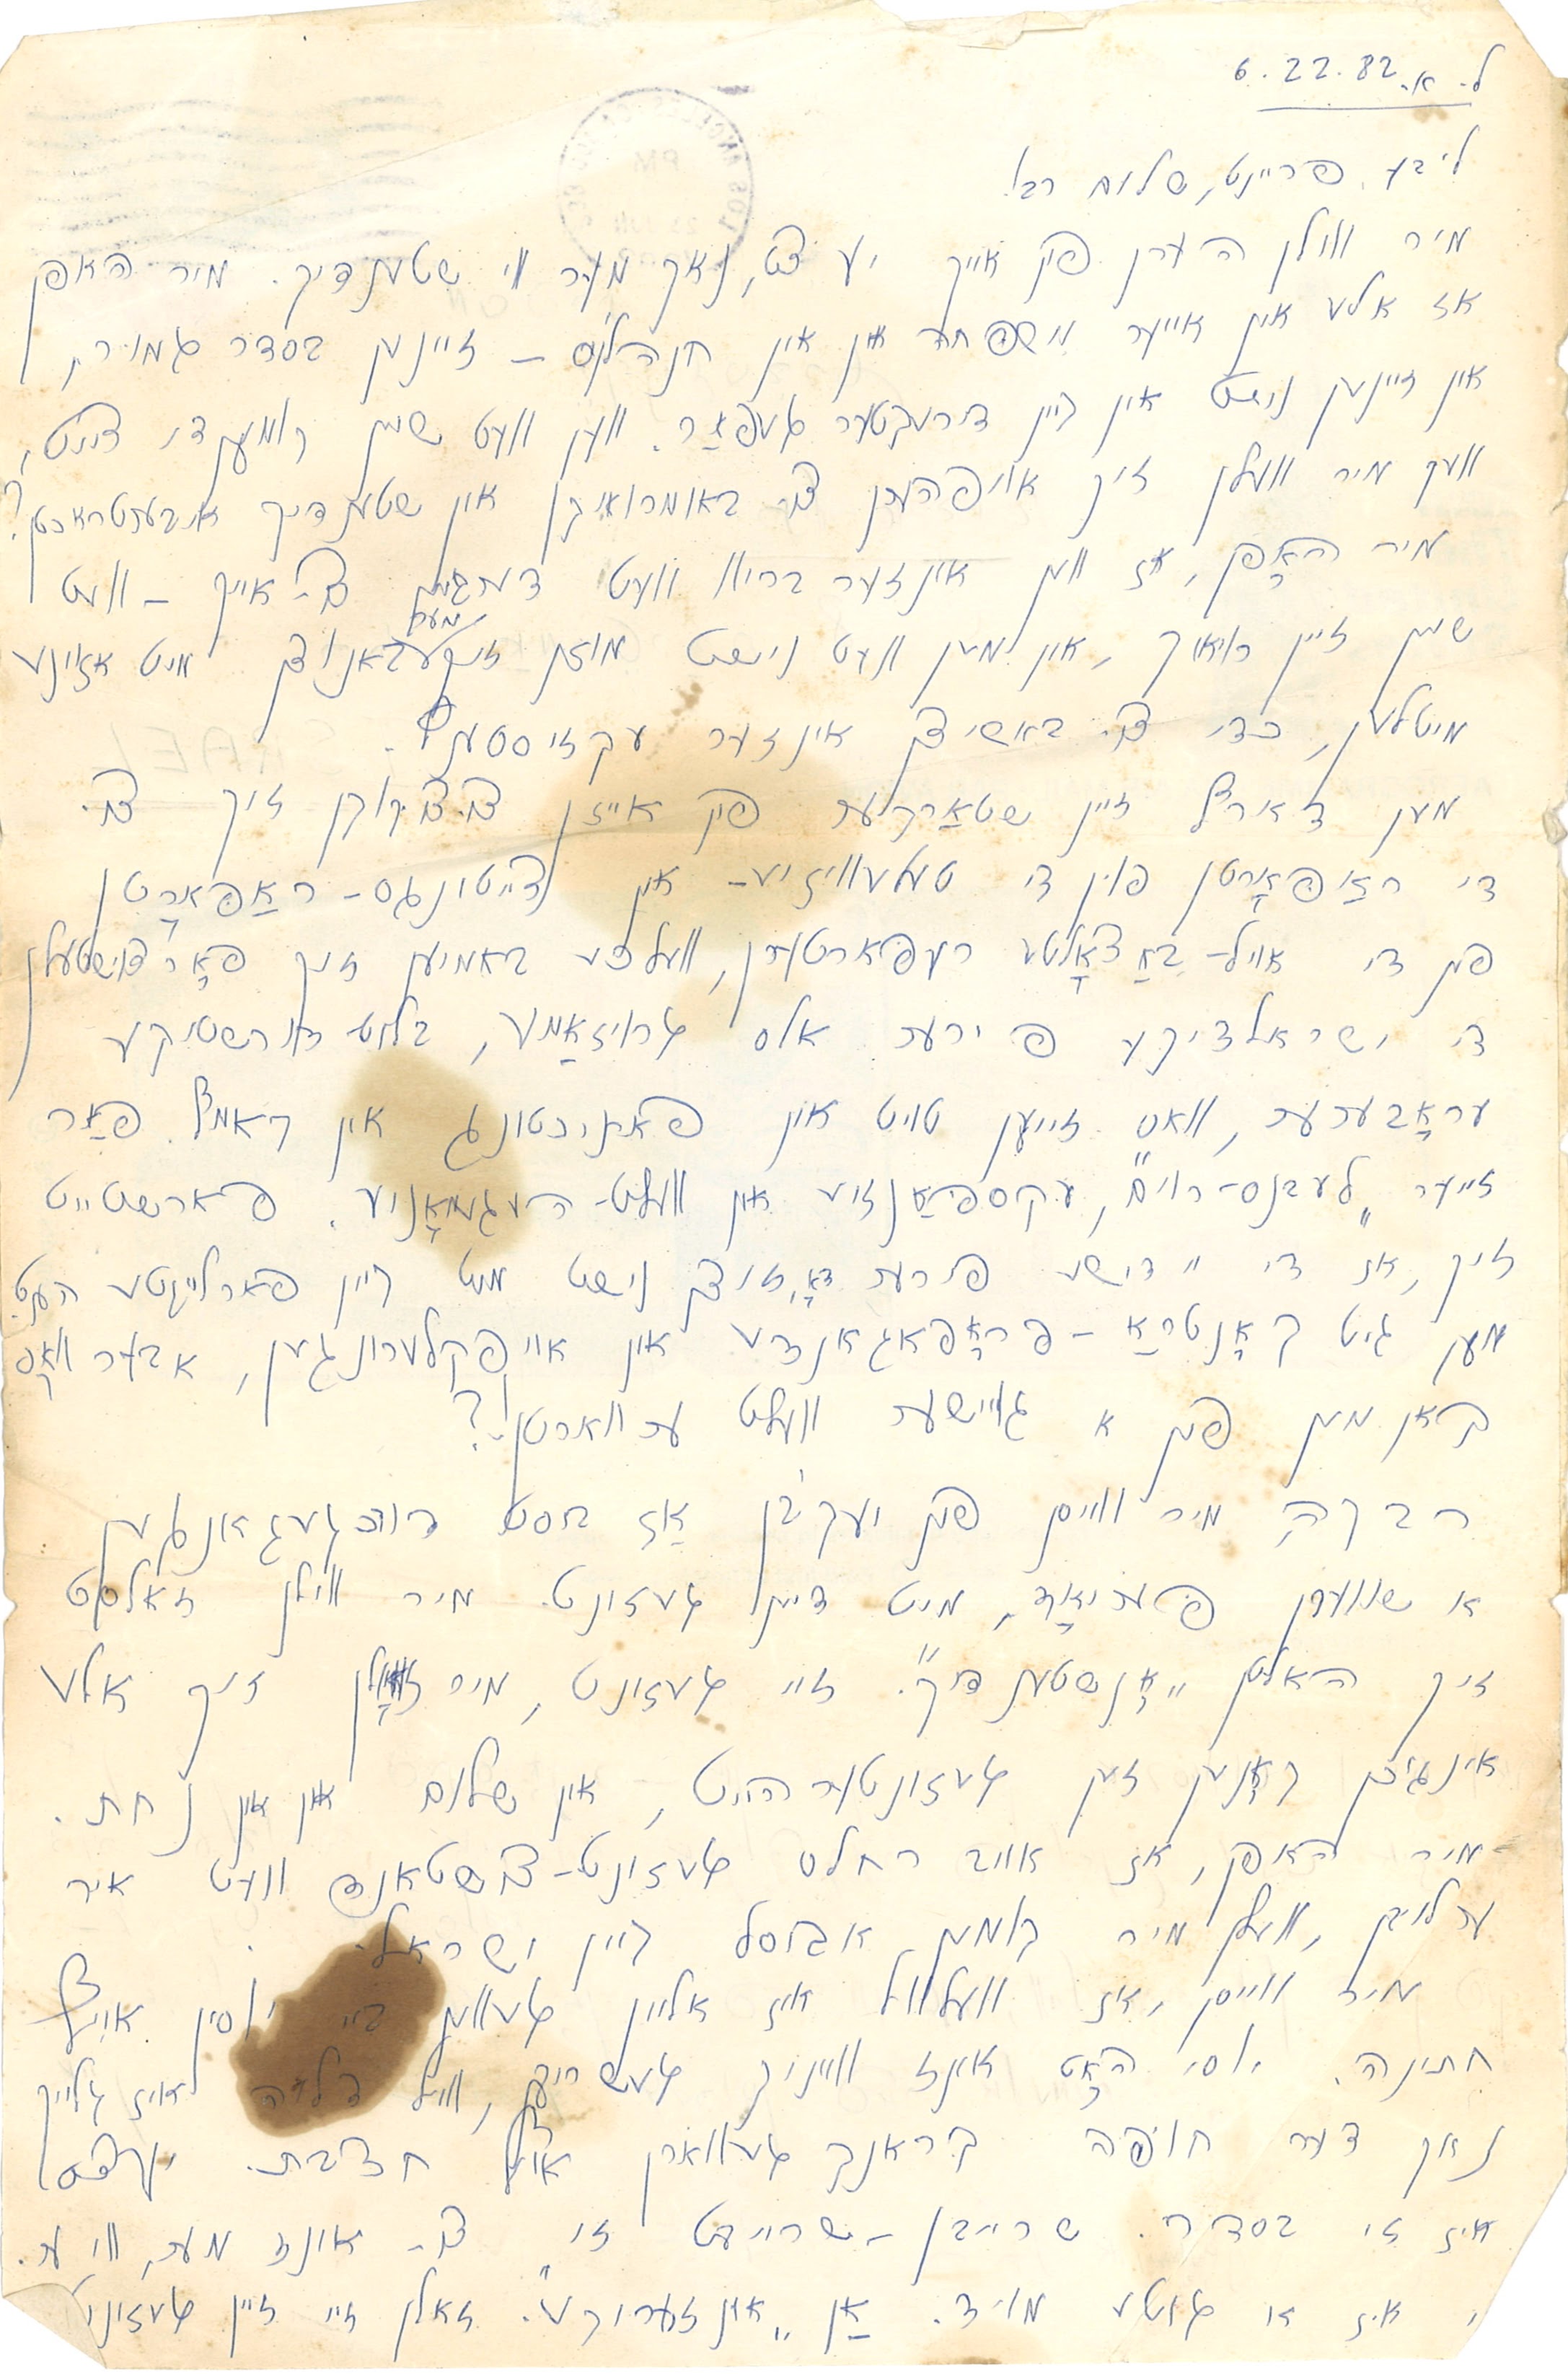 ל. א. 6.22.82
ליבע פריינט, שלום רב!
מיר ווילן הערן פון אייך יעצט, נאך מער ווי שטענדיק. מיר האפן
אז אלע אין אייער משפחה און אין חנהלעס – זיינען בסדר גמור,
און זיינען נישט אין קיין דירעקטער געפאַר. ווען וועט שוין קומען די צייט,
ווען מיר וועלן זיך אויפהערן צו באומרואיקן און שטענדיק
מיר האָפן, אז ווען אונזער בריוו וועט דערגיין צו אייך – וועט
שוין זיין רואיק, און מען וועט נישט מוזן זיך מער באנוצן מיט אזוינע
מיטלען, כדי צו באשיצן אונזער עקזיסטענץ.
מען דארף זיין שטאַרקער פון אייזן צו צוקוקן זיך צו
די ראַפּאָרטן פון די טעלעוויזיע- און צייטונגס-ראַפּאָרטן
פון די אויל-באַצאָלטע רעפארטערן, וועלכע באמיען זיך פאָרצושטעלן
די ישראלדיקע פירער אלס גרויזאַמע, בלוט דורשטיקע
עראָבערער, וואס זייען טויט און פארניכטונג אין קאמף פאַר
זייער "לעבנס-רוים", עקספּאַנזיע און וועלט-העגעמאָניע. פארשטייט
זיך, אז די יידישע פירער דאָ, זיצן נישט מיט קיין פארלייגטע הענט.
מען גיט קאָנטראַ-פּראָפּאגאנדע און אויפקלערונגען, אבער וואָס
קאן מען פון א גויישער וועלט ערווארטן?
רבקה, מיר ווייסן פון יעקבן אַז ביסט דורכגעגאנגען
א שווערן פּעריאָד, מיט דיין געזונט. מיר ווילן זאלסט
זיך האלטן "אָנשטענדיק". זיי געזונט, מיר זאָלן זיך אלע
אינגיכן קאָנען זען געזונטערהייט, אין שלום און אין נחת.
מיר האפן, אז אויב רחלס געזונט-צושטאנד וועט איר
ערלויבן, וועלן מיר קומען אביסל קיין ישראל.
מיר ווייסן, אז וועלוול איז אליין געווען ביי יוסין אויף
חתונה. יוסי האָט אונז ווייניק געשריבן, ווייל דליה איז גלייך
נאך דער חופה קראנק געווארן אויף חצבת. יעצט
איז זי בסדר. שרייבן – שרייבט זי צו אונז מער, ווי ער.
זי איז א גוטע מויד. אַן "אונזעריקע". זאלן זיי זיין געזונט